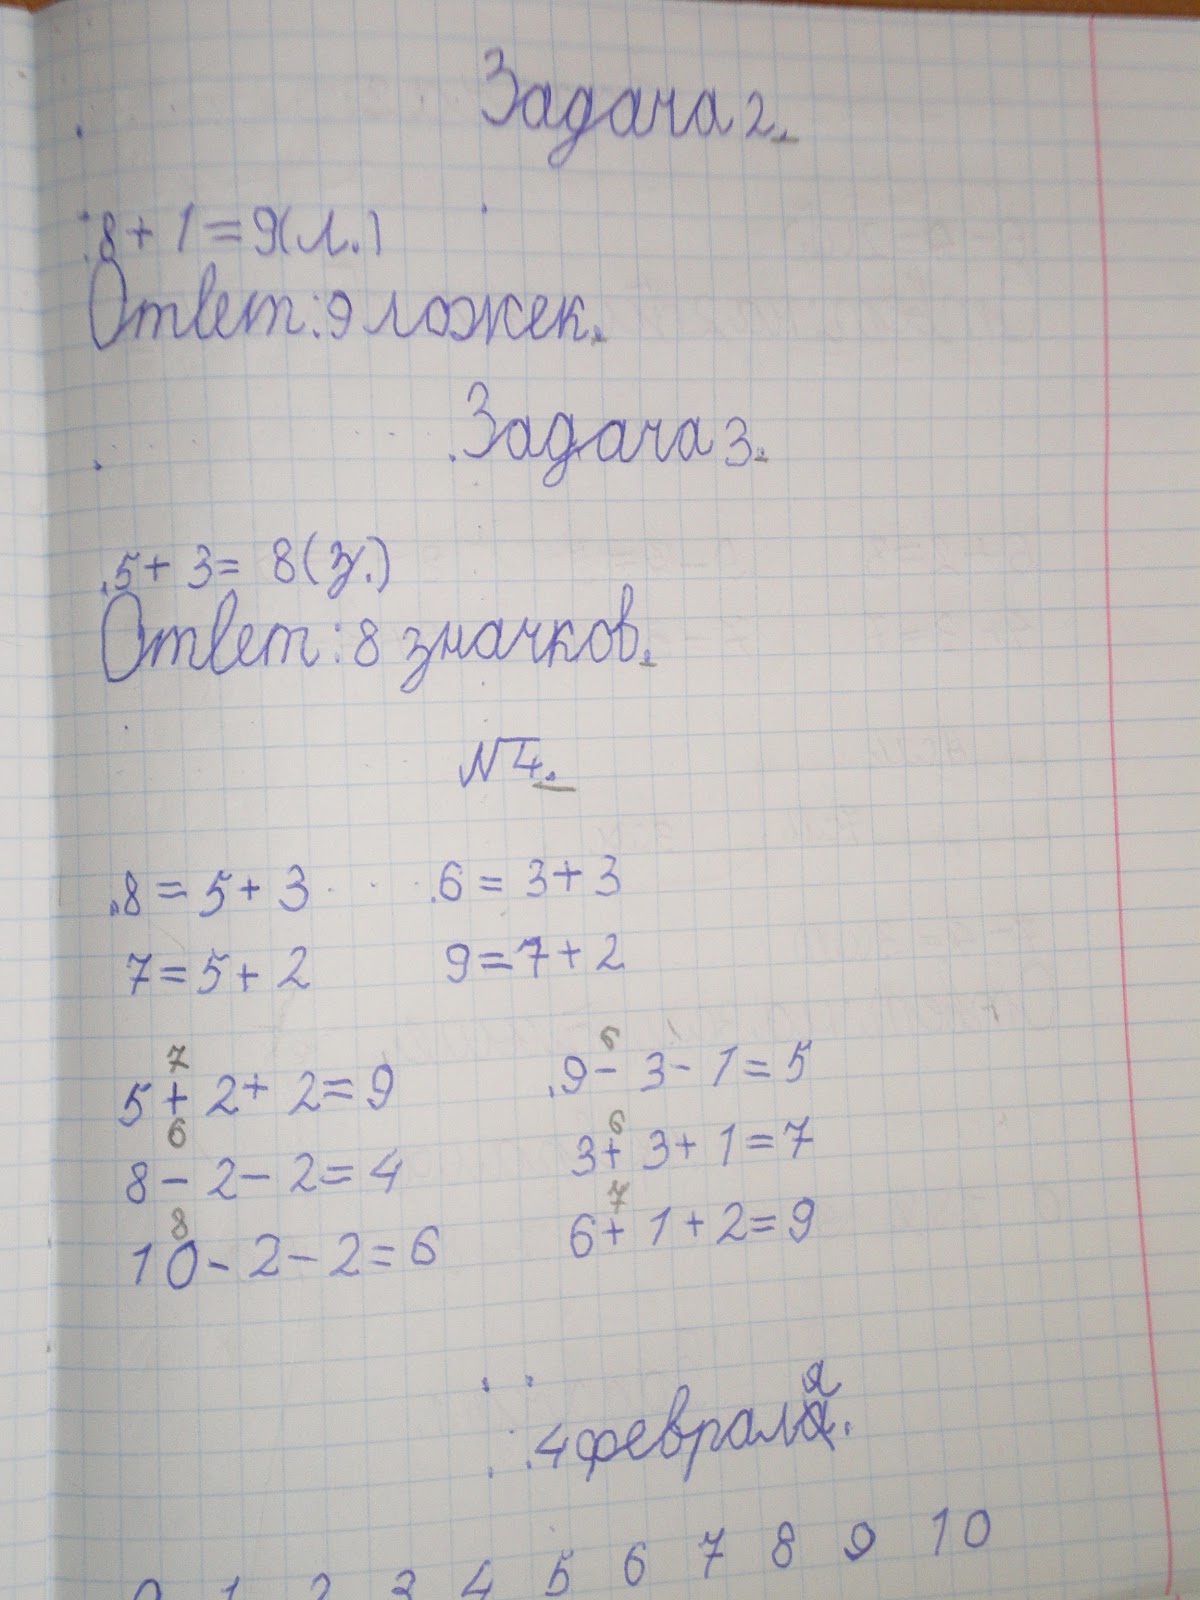 Задача 2.
8 + 1 = 9 (л.)
Ответ: 9 ложек.
Задача 3.
5 + 3 = 8 (з.)
Ответ: 8 значков.
№ 4.
8 = 5 + 3 6 = 3 + 3
7 = 5 + 2 9 = 7 + 2
7 6
5 + 2 + 2 = 9 9 - 3 - 1 = 5
6 6
8 - 2 - 2 = 4 3 + 3 + 1 = 7
8 7
10 - 2 - 2 = 6 6 + 1 + 2 = 9
я
4 февраля.
0 1 2 3 4 5 6 7 8 9 10